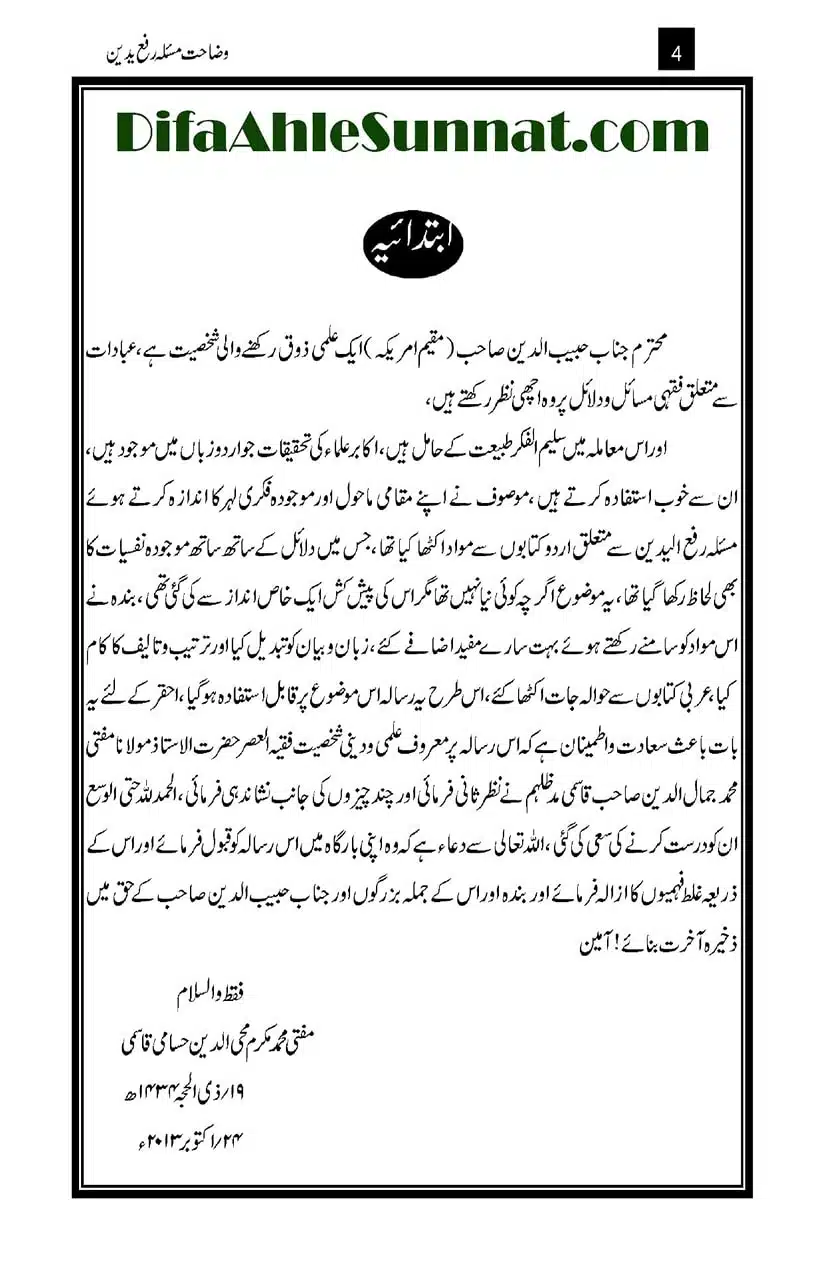 وضاحت مسئلہ رفع یدین
4
DifaAhleSunnat.com
ابتدائیہ
محترم جناب حبیب الدین صاحب (مقیم امریکہ) ایک علمی ذوق رکھنے والی شخصیت ہے، عبادات
سے متعلق فقہی مسائل و دلائل پر وہ اچھی نظر رکھتے ہیں،
اور اس معاملہ میں سلیم الفکر طبیعت کے حامل ہیں، اکابر علماء کی تحقیقات جو اردو زباں میں موجود ہیں،
ان سے خوب استفادہ کرتے ہیں، موصوف نے اپنے مقامی ماحول اور موجودہ فکری لہر کا اندازہ کرتے ہوئے
مسئلہ رفع الیدین سے متعلق اردو کتابوں سے مواد اکٹھا کیا تھا، جس میں دلائل کے ساتھ ساتھ موجودہ نفسیات کا
بھی لحاظ رکھا گیا تھا، یہ موضوع اگرچہ کوئی نیا نہیں تھا مگر اس کی پیش کش ایک خاص انداز سے کی گئی تھی، بندہ نے
اس مواد کو سامنے رکھتے ہوئے بہت سارے مفید اضافے کئے، زبان و بیان کو تبدیل کیا اور ترتیب و تالیف کا کام
کیا، عربی کتابوں سے حوالہ جات اکٹھا کئے، اس طرح یہ رسالہ اس موضوع پر قابل استفادہ ہو گیا، احقر کے لئے یہ
بات باعث سعادت و اطمینان ہے کہ اس رسالہ پر معروف علمی و دینی شخصیت فقیہ العصر حضرت الاستاذ مولانا مفتی
محمد جمال الدین صاحب قاسمی مدظلہم نے نظر ثانی فرمائی اور چند چیزوں کی جانب نشاندہی فرمائی، الحمد للہ حتی الوسع
ان کو درست کرنے کی سعی کی گئی، اللہ تعالی سے دعاء ہے کہ وہ اپنی بارگاہ میں اس رسالہ کو قبول فرمائے اور اس کے
ذریعہ غلط فہمیوں کا ازالہ فرمائے اور بندہ اور اس کے جملہ بزرگوں اور جناب حبیب الدین صاحب کے حق میں
ذخیرہ آخرت بنائے! آمین
فقط والسلام
مفتی محمد مکرم محی الدین حسامی قاسمی
۱۹/ذی الحجہ ۱۴۳۴ھ
۲۴/اکتوبر ۲۰۱۳ء